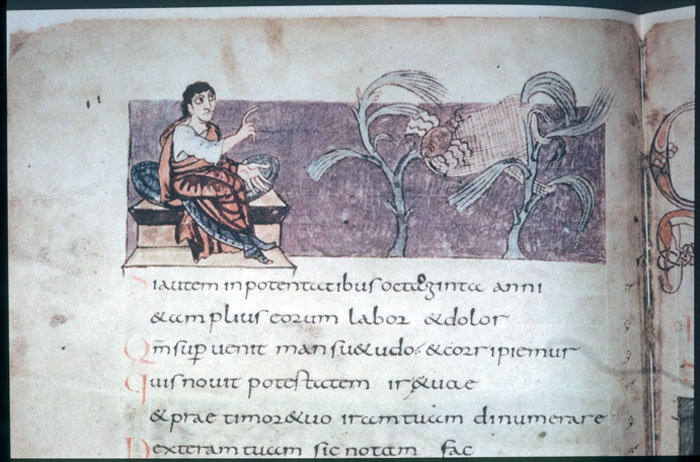 Siautem inpotentatibus octoginta anni
&amplius eorum labor &dolor
Qm̄ sup̄uenit mansu&udo· &corripiemur
Quis nouit potestatem irae tuae
&prae timore tuo iram tuam dinumerare
Dexteram tuam sic notam fac